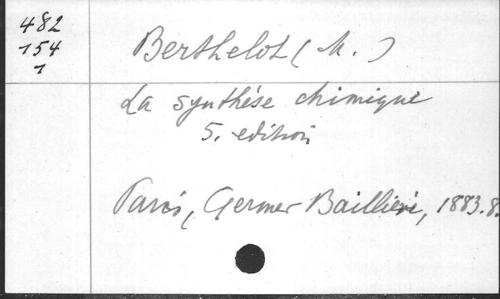 482
154
1
Berthelot (M.)
La synthése chimique
5. edition
Paris, Germer Baillière, 1883. 8.